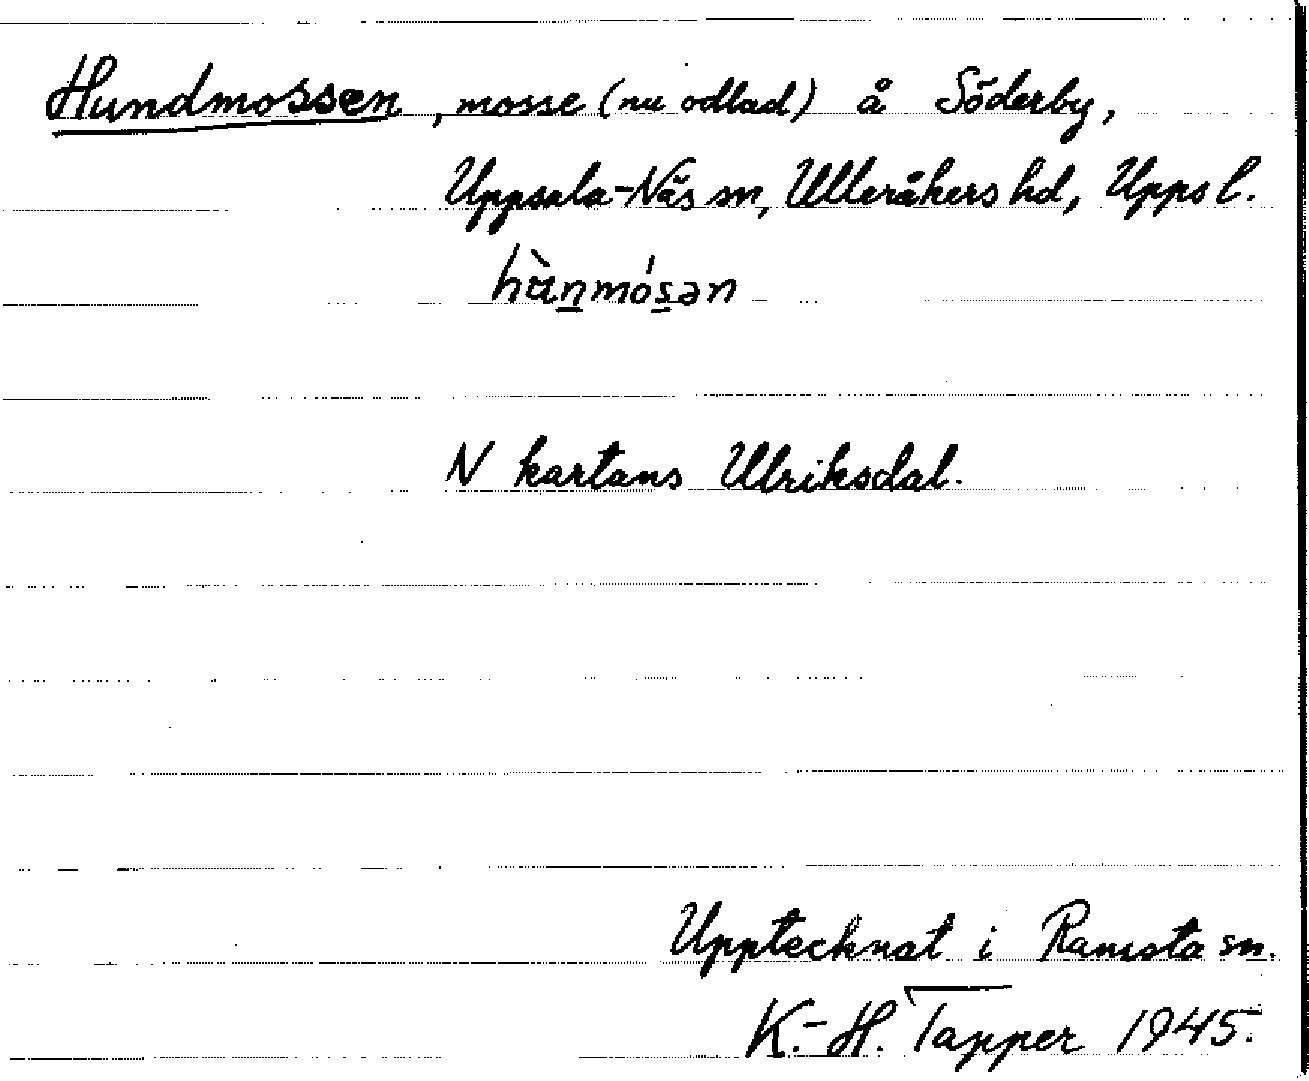 Hundmossen, mosse (nu odlad) å Söderby,
Uppsala-Näs sn, Ulleråkers hd, Uppsl.
hùn̲mós̲ən
N kartans Ulriksdal.
Upptecknat i Ramsta sn.
K.-H. Tapper 1945.